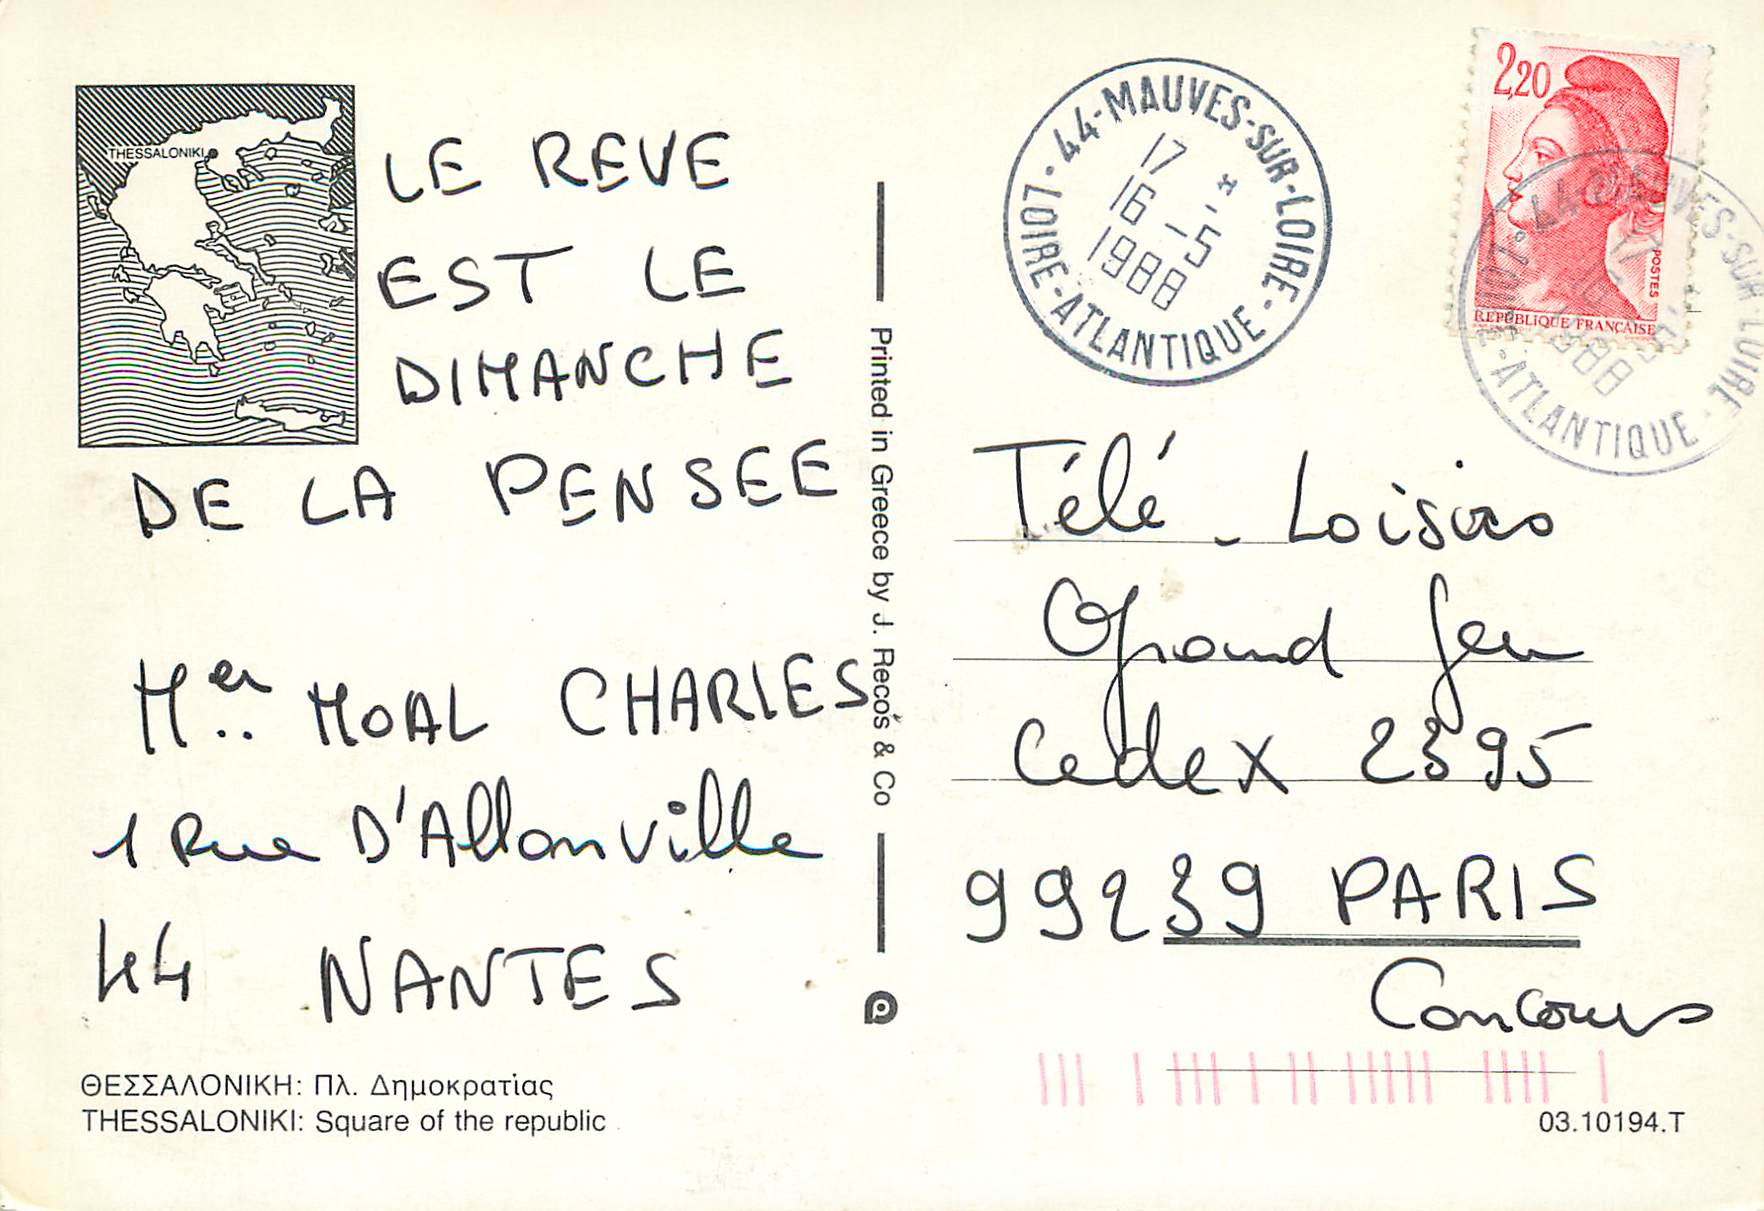 THESSALONIKI
LE REVE
EST LE
DIMANCHE
DE LA PENSEE
Mer.. MOAL CHARLES
1 Rue D'Allonville
44 NANTES
ΘΕΣΣΑΛΟΝΙΚΗ: Πλ. Δημοκρατίας
THESSALONIKI: Square of the republic
Printed in Greece by J. Recos & Co
44-MAUVES-SUR-LOIRE
17 *
16 -5
1988
LOIRE-ATLANTIQUE
LOI07
2,20
POSTES
REPUBLIQUE FRANÇAISE
44-MAUVES-SUR-LOIRE
17
16
1988
-ATLANTIQUE
Télé - Loisirs
Grand Jeu
Cedex 2395
99239 PARIS
Concours
03.10194.T